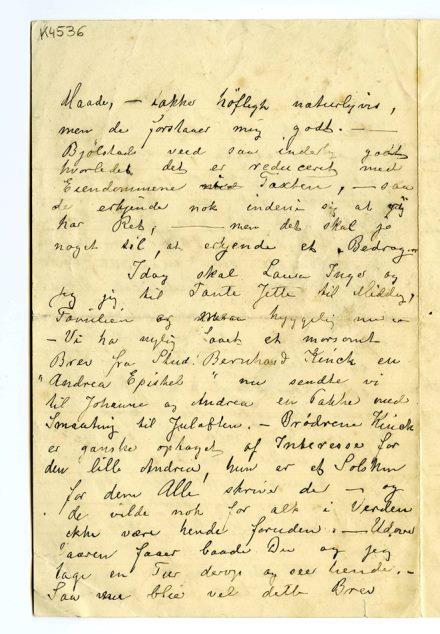 K4536
Maade, — takker høfligt naturligvis,
men de forstaaer mig godt. —
Bjölstads veed saa inderlig godt
hvorledes det er reduceret med
Eiendommene Taxten, — saa
de erkjende nok inderst sig at jeg
har Ret, — men det skal jo
noget til, at erkjende et Bedrag
Idag skal Laura Inger og
jeg til Tante Jette til Middag,
Familien og hyggelig
— Vi ha nylig faaet et morsomt
Brev fra Stud. Bernhard Kinck en
"Andrea Epistel" nu sendte vi
til Johanne og Andrea en Pakke med
Smaating til Juleaften. — Brødrene Kinck
er ganske ophøget af Interesse for
den lille Andrea, hun er et Solskin
for dem Alle skriver de — og
de vilde nok for alt i Verden
ikke være hende foruden. — Udover
Vaaren faaer baade Du og jeg
tage en Tur derop og see hende. —
Saa blir vel dette Brev